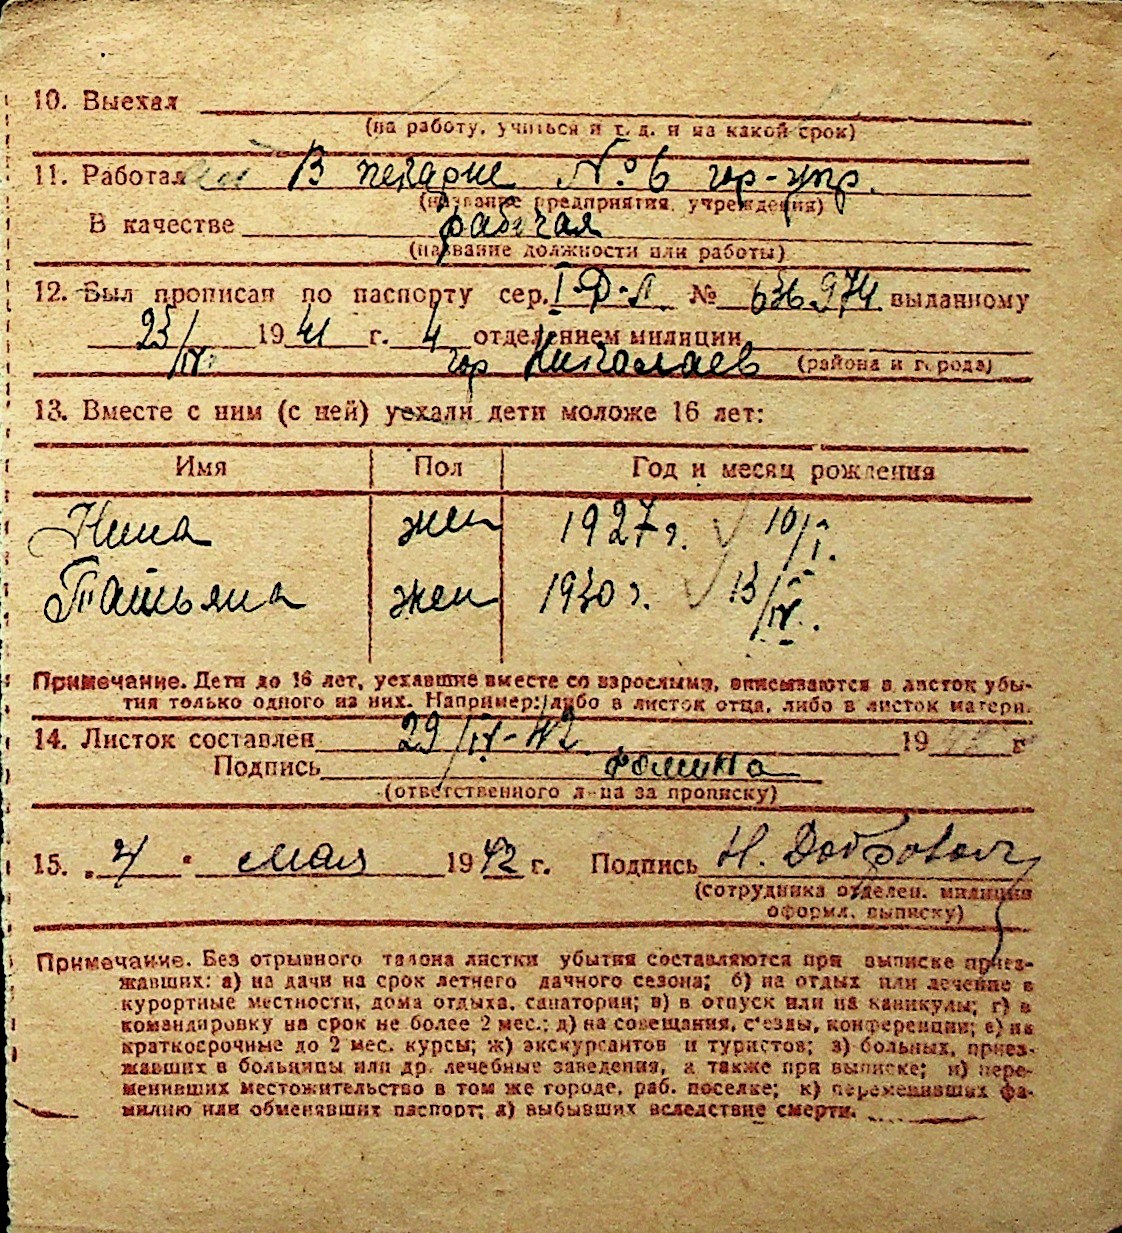 10. Выехал
(на работу, учиться и т. д. и на какой срок)
11. Работал В пекарне №6 гор-упр.
(название предприятия, учреждения)
В качестве рабочая
(название должности или работы)
12. Был прописан по паспорту сер. I-Ф-Л № 636974 выданному
23/IV 1941 г. 4 отделением милиции
гор Николаев (района и города)
13. Вместе с ним (с ней) уехали дети моложе 16 лет:
Имя Пол Год и месяц рождения
Нина жен 1927 г. 10/I.
Татьяна жен 1930 г. 13/IV.
Примечание. Дети до 16 лет, уехавшие вместе со взрослыми, вписываются в листок убы-
тия только одного из них. Например: либо в листок отца, либо в листок матери.
14. Листок составлен 29/IV-42 19 г
Подпись Фомина
(ответственного л-ца за прописку)
15. "4" мая 1942 г. Подпись Н. Доброволь
(сотрудника отделен. милиции
оформл. выписку)
Примечание. Без отрывного талона листки убытия составляются при выписке приез-
жавших: а) на дачи на срок летнего дачного сезона; б) на отдых или лечение в
курортные местности, дома отдыха, санатории; в) в отпуск или на каникулы; г) в
командировку на срок не более 2 мес.; д) на совещания, с'езды, конференции; е) на
краткосрочные до 2 мес. курсы; ж) экскурсантов и туристов; з) больных, приез-
жавших в больницы или др. лечебные заведения, а также при выписке; и) пере-
менивших местожительство в том же городе, раб. поселке; к) переменивших фа-
милию или обменявших паспорт; л) выбывших вследствие смерти.